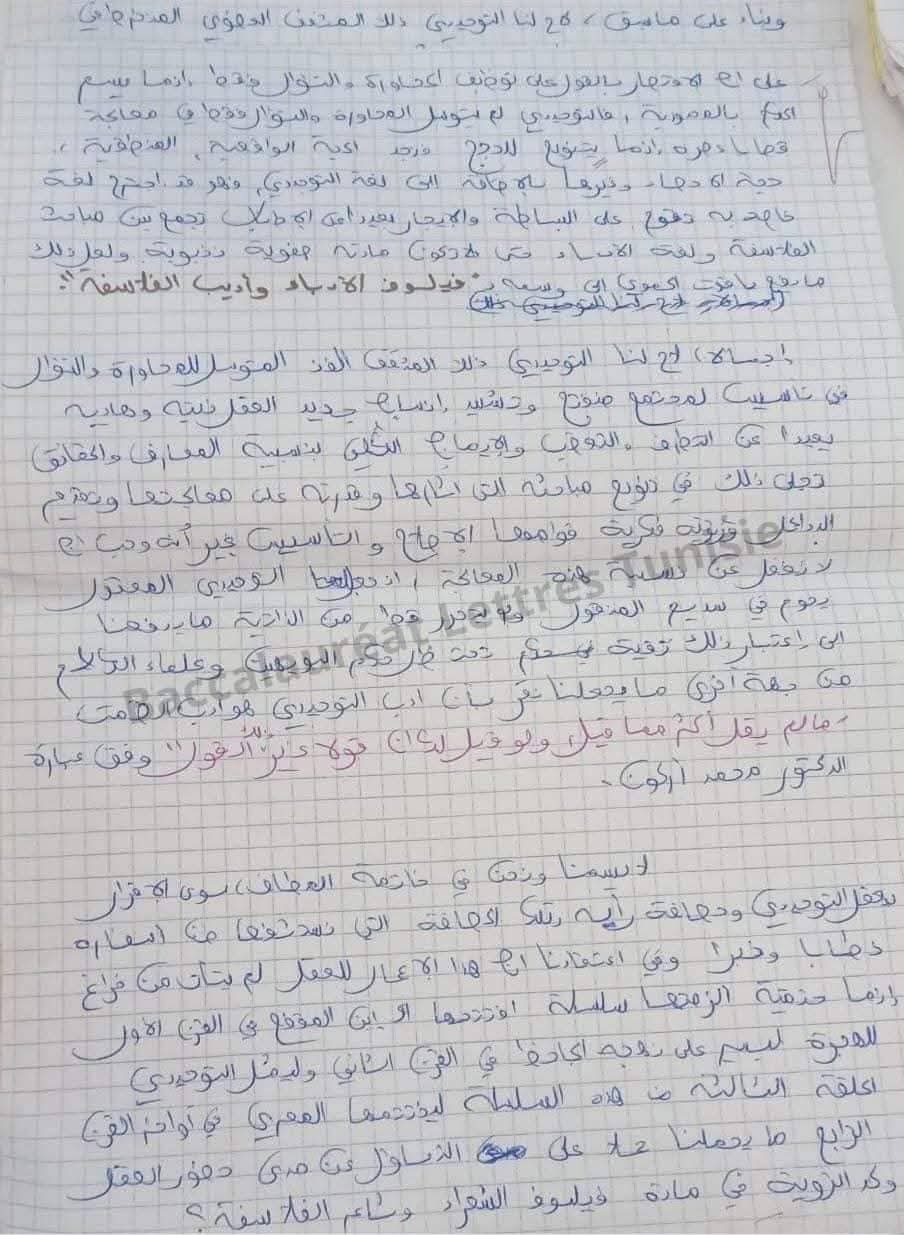 وبناء على ماسبق، لاح لنا التوحيدي ذلك المثقف
على أن الاقتصار بالقول على توظيف المحاورة والسؤال فقط إنما يتسم
الحكم بالمحدودية، فالتوحيدي لم يتوسل المحاورة والسؤال فقط في معالجة
قضايا دهره إنما بتنويع للحجج فنجد الحجة الواقعية، المنطقية،
حجة الادعاء وغيرها بالإضافة الى لغة التوحيدي، فهو قد اجترح لغة
خاصة به تقوم على البساطة والإيجاز بعيدا عن الإطناب تجمع بين مباحث
الفلاسفة ولغة الأدباء حتى لا تكون مادته صفوية نخبوية ولعل ذلك
ما دفع ياقوت الحموي الى وسمه بـ "فيلسوف الأدباء وأديب الفلاسفة".
إجمالا، لاح لنا التوحيدي ذلك المثقف الفذ المتوسل للمحاورة والسؤال
في تأسيس لمجتمع منفتح وتشييد إنسان جديد العقل نبيه وهاديه
بعيدا عن التطرف، التعصب والإيمان الكلي بنسبية المعارف والحقائق
تجلى ذلك في تنويع مباحثه التي أثارها وقدرته على معالجتها وتقديم
البدائل فكرية قوامها الإصلاح والتأسيس غير أنه وجب أن
لا نغفل عن نسبية هذه المعالجة، إذ التوحيدي المعقول
يحوم في سديم المنقول ولم يتحرر قط من الذاتية ما يدفعنا
الى إعتبار ذلك تقية تحت ظل حكم البويهيين وعلماء الكلام
من جهة أخرى ما يجعلنا نقر بأن أدب التوحيدي هو أدب الصامت
"مالم يقل أكثر مما قيل ولو قيل لكان قولا غير ذلك القول" وفق عبارة
الدكتور محمد أركون.
لا يسعنا ونحن في خاتمة المطاف، سوى الإقرار
بعقل التوحيدي وحصافة رأيه تلك الحصافة التي نستشفها من أسفاره
خطابا وخبرا وفي اعتقادنا أن هذا الإعمار للعقل لم يتأت من فراغ
إنما حتمية الزمتها سلسلة افتتحها ابن المقفع في القرن الأول
للهجرة ليسير على نهجه الجاحظ في القرن الثاني وليمثل التوحيدي
الحلقة الثالثة من هذه السلسلة ليختتمها المعري في أواخر القرن
الرابع ما يحملنا حملا على التساؤل عن مدى حضور العقل
وكد الروية في مادة فيلسوف الشعراء وشاعر الفلاسفة؟
Baccalauréat Lettres Tunisie